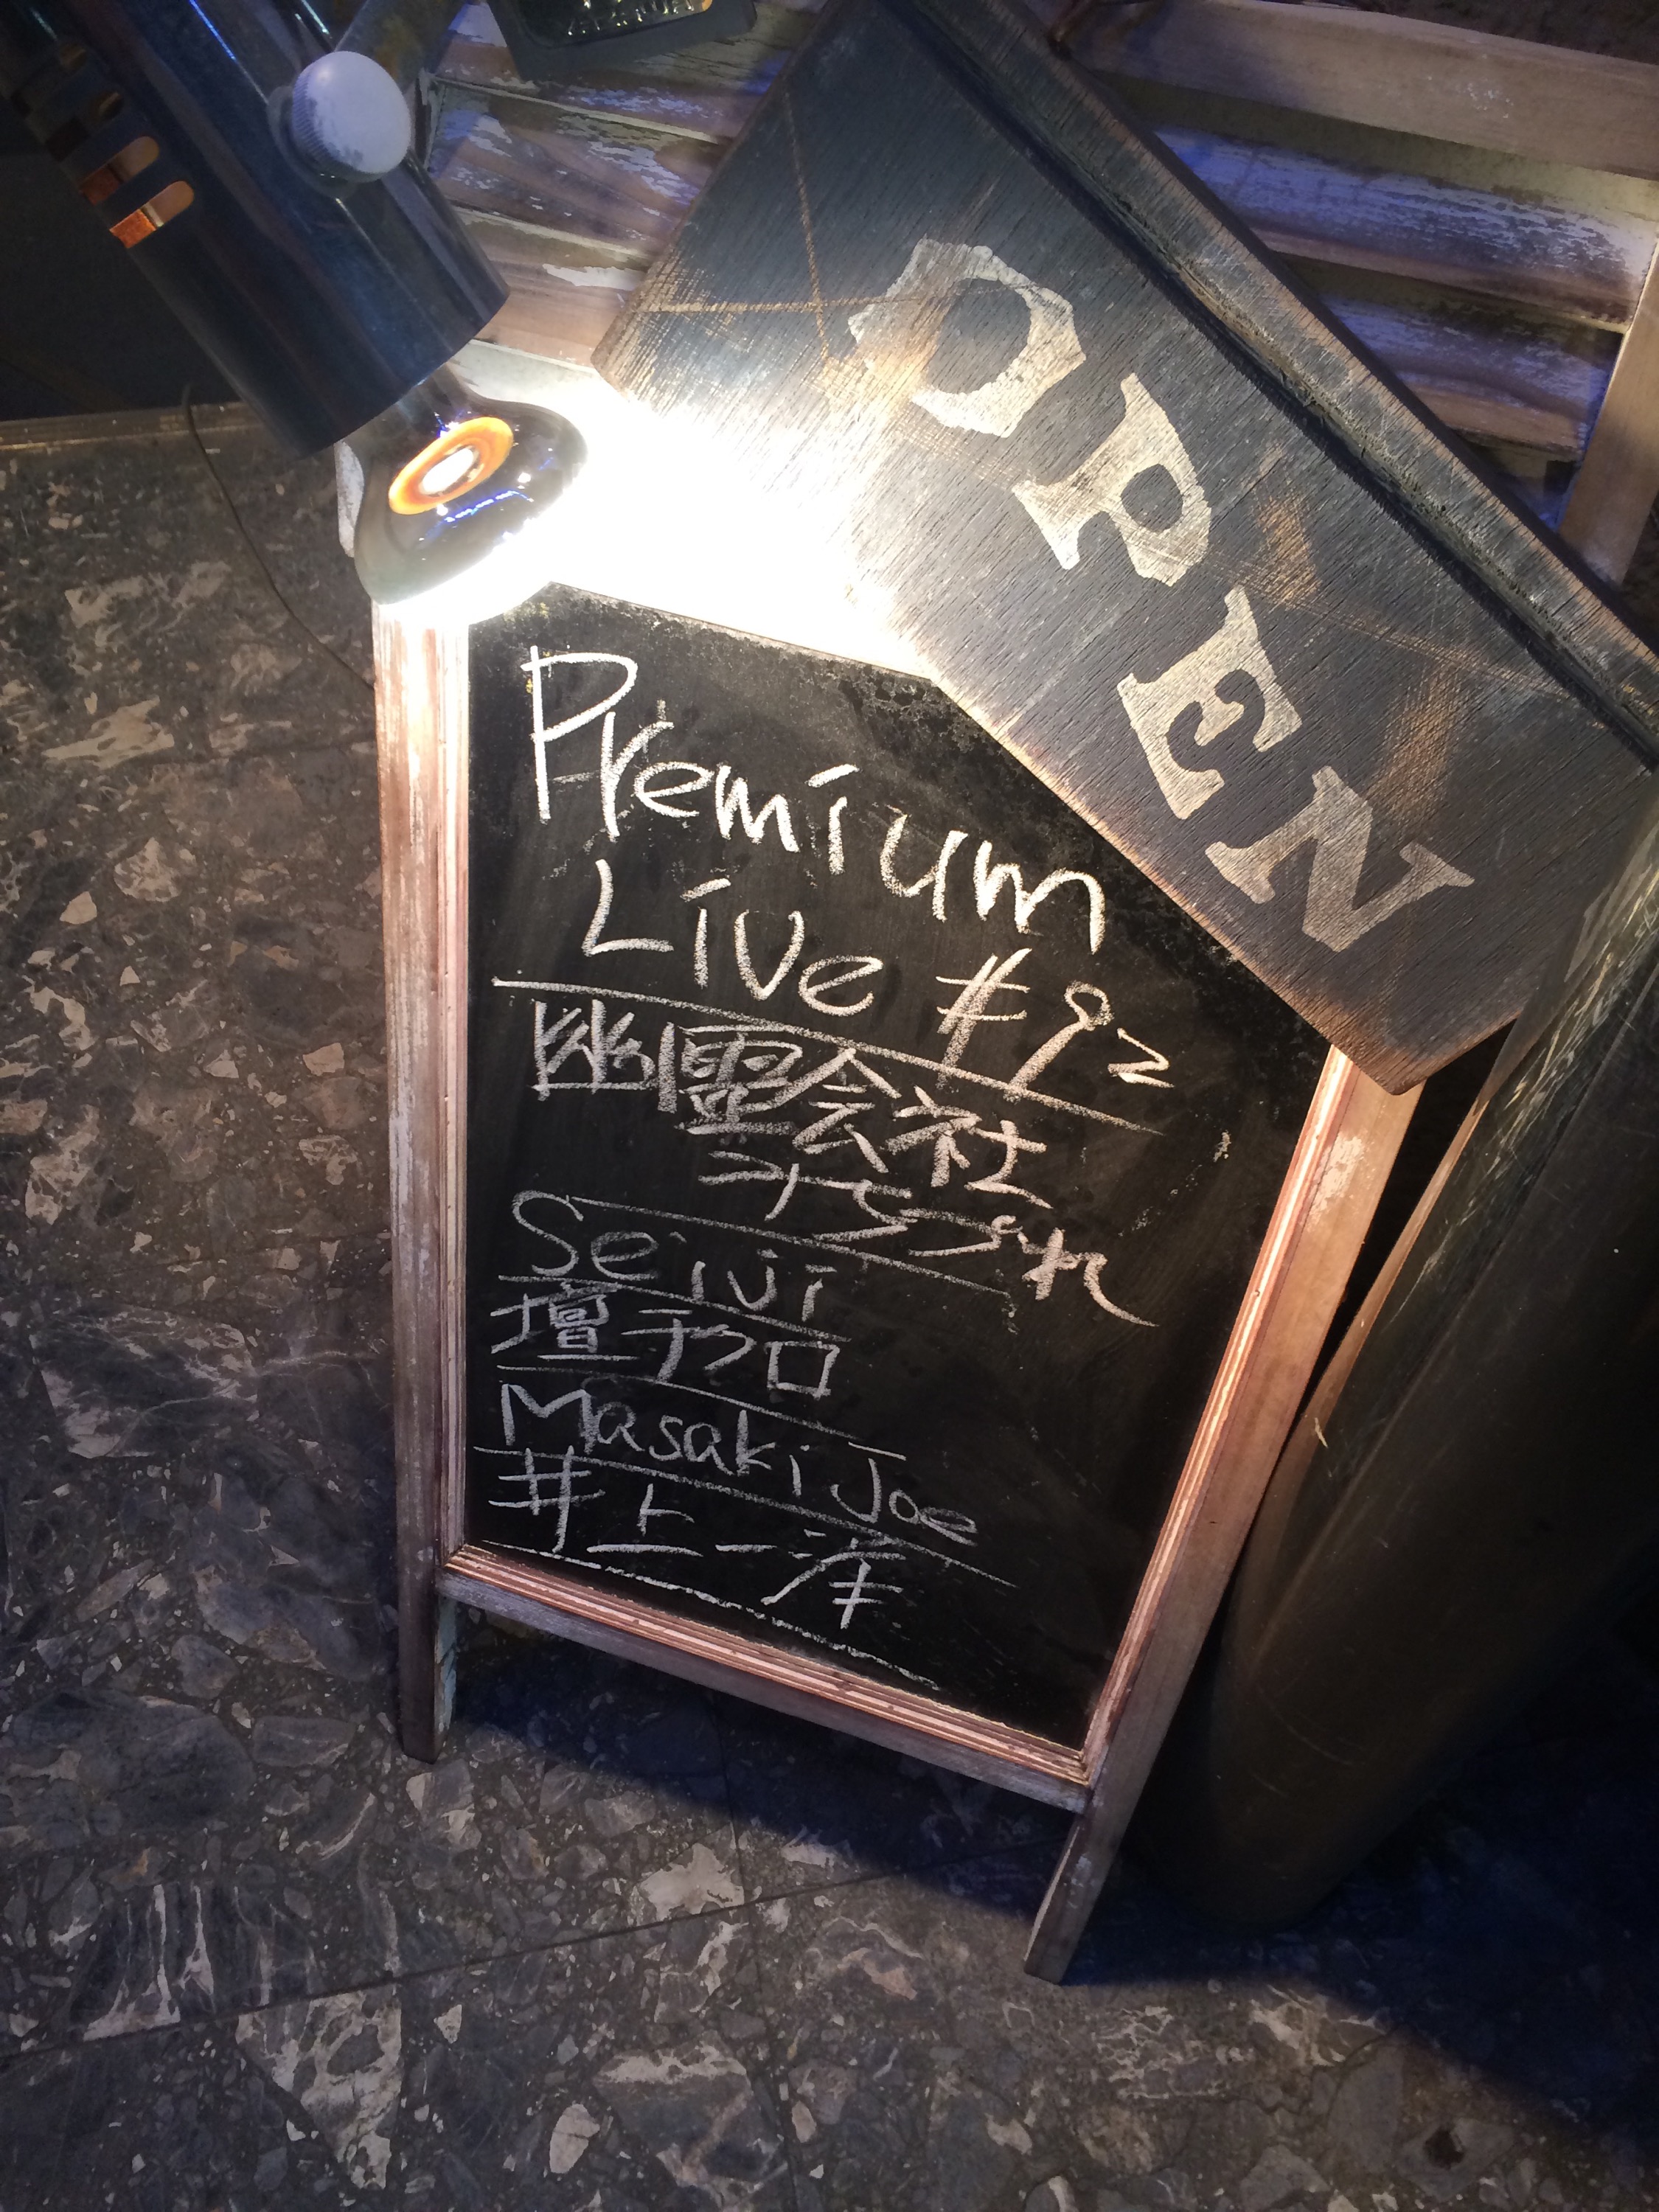 OPEN
Premium
Live #92
幽霊会社
Seiji
壇テクロ
Masaki Joe
井上一洋